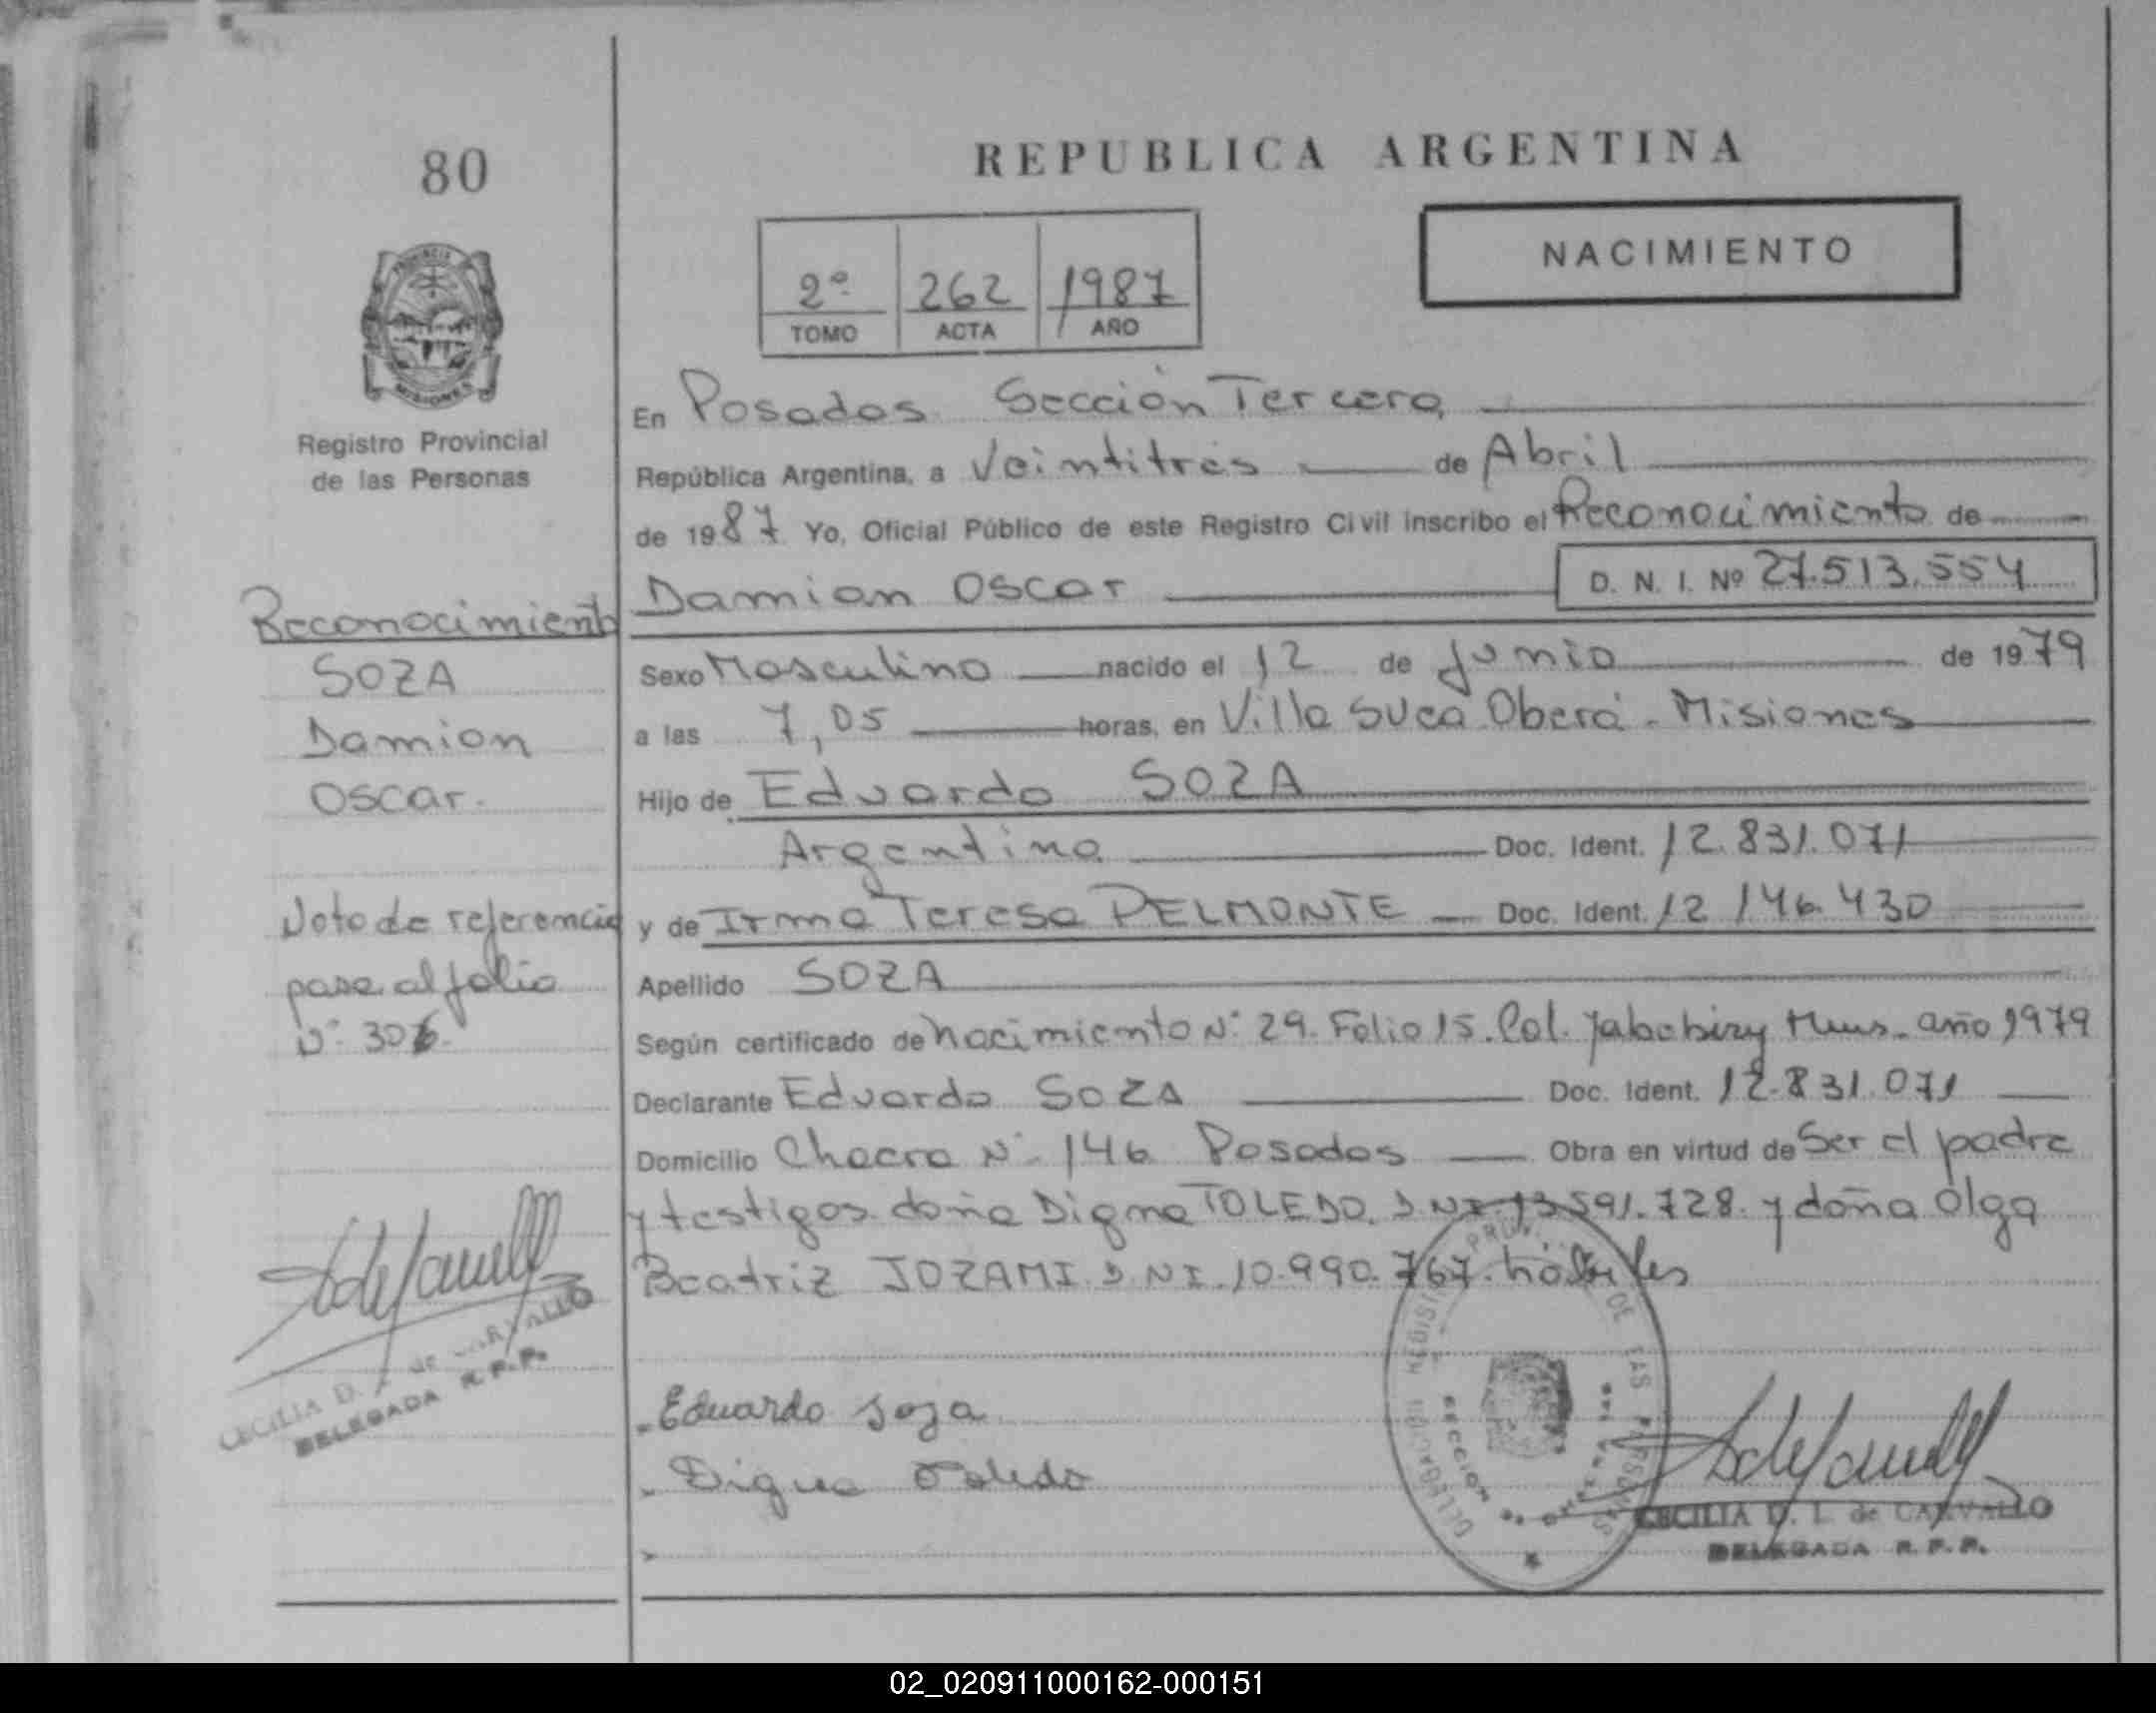 80
REPUBLICA ARGENTINA
NACIMIENTO
2º 262 1987
TOMO ACTA AÑO
PROVINCIA
MISIONES
Registro Provincial
de las Personas
En Posadas Sección Tercera
República Argentina, a Veintitres de Abril
de 1987 Yo, Oficial Público de este Registro Civil inscribo el Reconocimiento de
Damian Oscar D. N. I. Nº 27.513.554
Reconocimiento
SOZA
Damian
Oscar.
Sexo Masculino nacido el 12 de Junio de 1979
a las 7,05 horas, en Villa Suca Oberá - Misiones
Hijo de Eduardo SOZA
Argentina Doc. Ident. 12.831.071
y de Irma Teresa DELMONTE Doc. Ident. 12 146.430
Apellido SOZA
Nota de referencia
pase al folio
Nº 306.
Según certificado de Nacimiento Nº 29. Folio 15. Col. Yabebiry Mnes. año 1979
Declarante Eduardo SOZA Doc. Ident. 12.831.071
Domicilio Chacra Nº 146 Posadas Obra en virtud de Ser el padre
y testigos doña Digna TOLEDO. DNI 13591.728. y doña Olga
Beatriz JOZAMI DNI. 10.990.767. hábiles
CECILIA D. de CARVALLO
DELEGADA R.P.P.
Eduardo Soza
Digna Toledo
DE LAS PERSONAS
SECCION
CECILIA D. L. de CARVALLO
DELEGADA R.P.P.
02_020911000162-000151